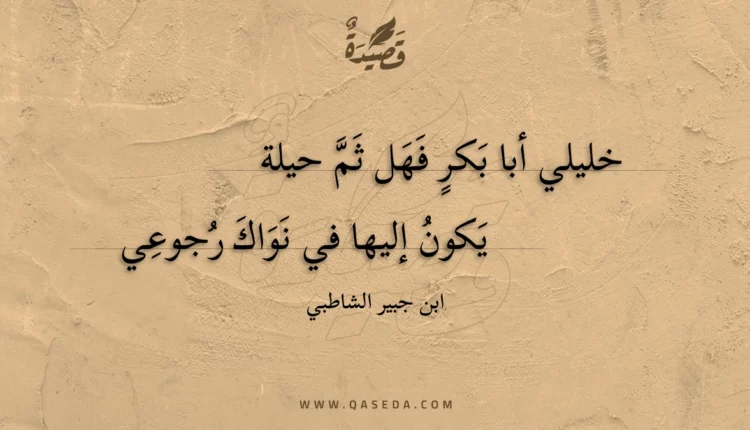 قَصِيْدَةٌ
خليلي أبا بَكرٍ فَهَل ثَمَّ حيلة
يَكونُ إليها في نَوَاكَ رُجوعِي
ابن جبير الشاطبي
WWW.QASEDA.COM